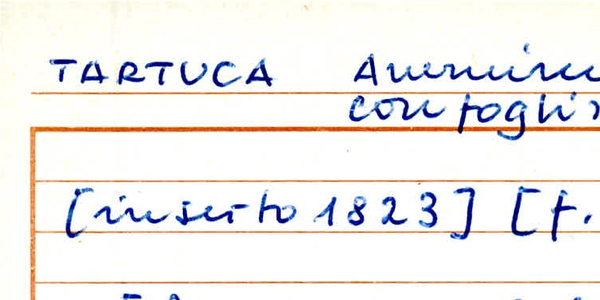 TARTUCA
con fogli
[inserto 1823] [f.